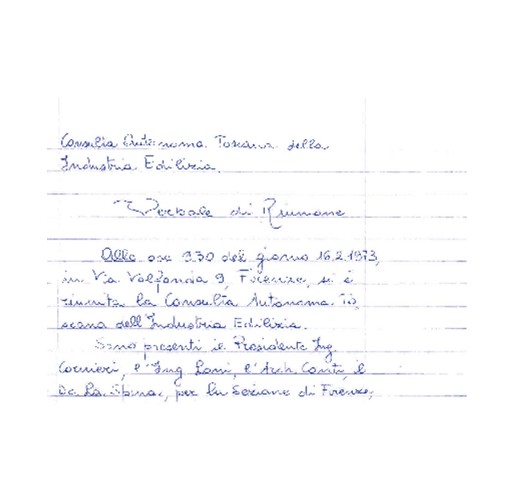 Consulta Autonoma Toscana della
Industria Edilizia.
Verbale di Riunione
Alle ore 9.30 del giorno 16.2.1973,
in Via Valfonda 9, Firenze, si è
riunita la Consulta Autonoma To,
scana dell'Industria Edilizia.
Sono presenti il Presidente Ing.
l'Ing. Lani, l'Arch. Conti, il
La Spina, per la Sezione di Firenze,